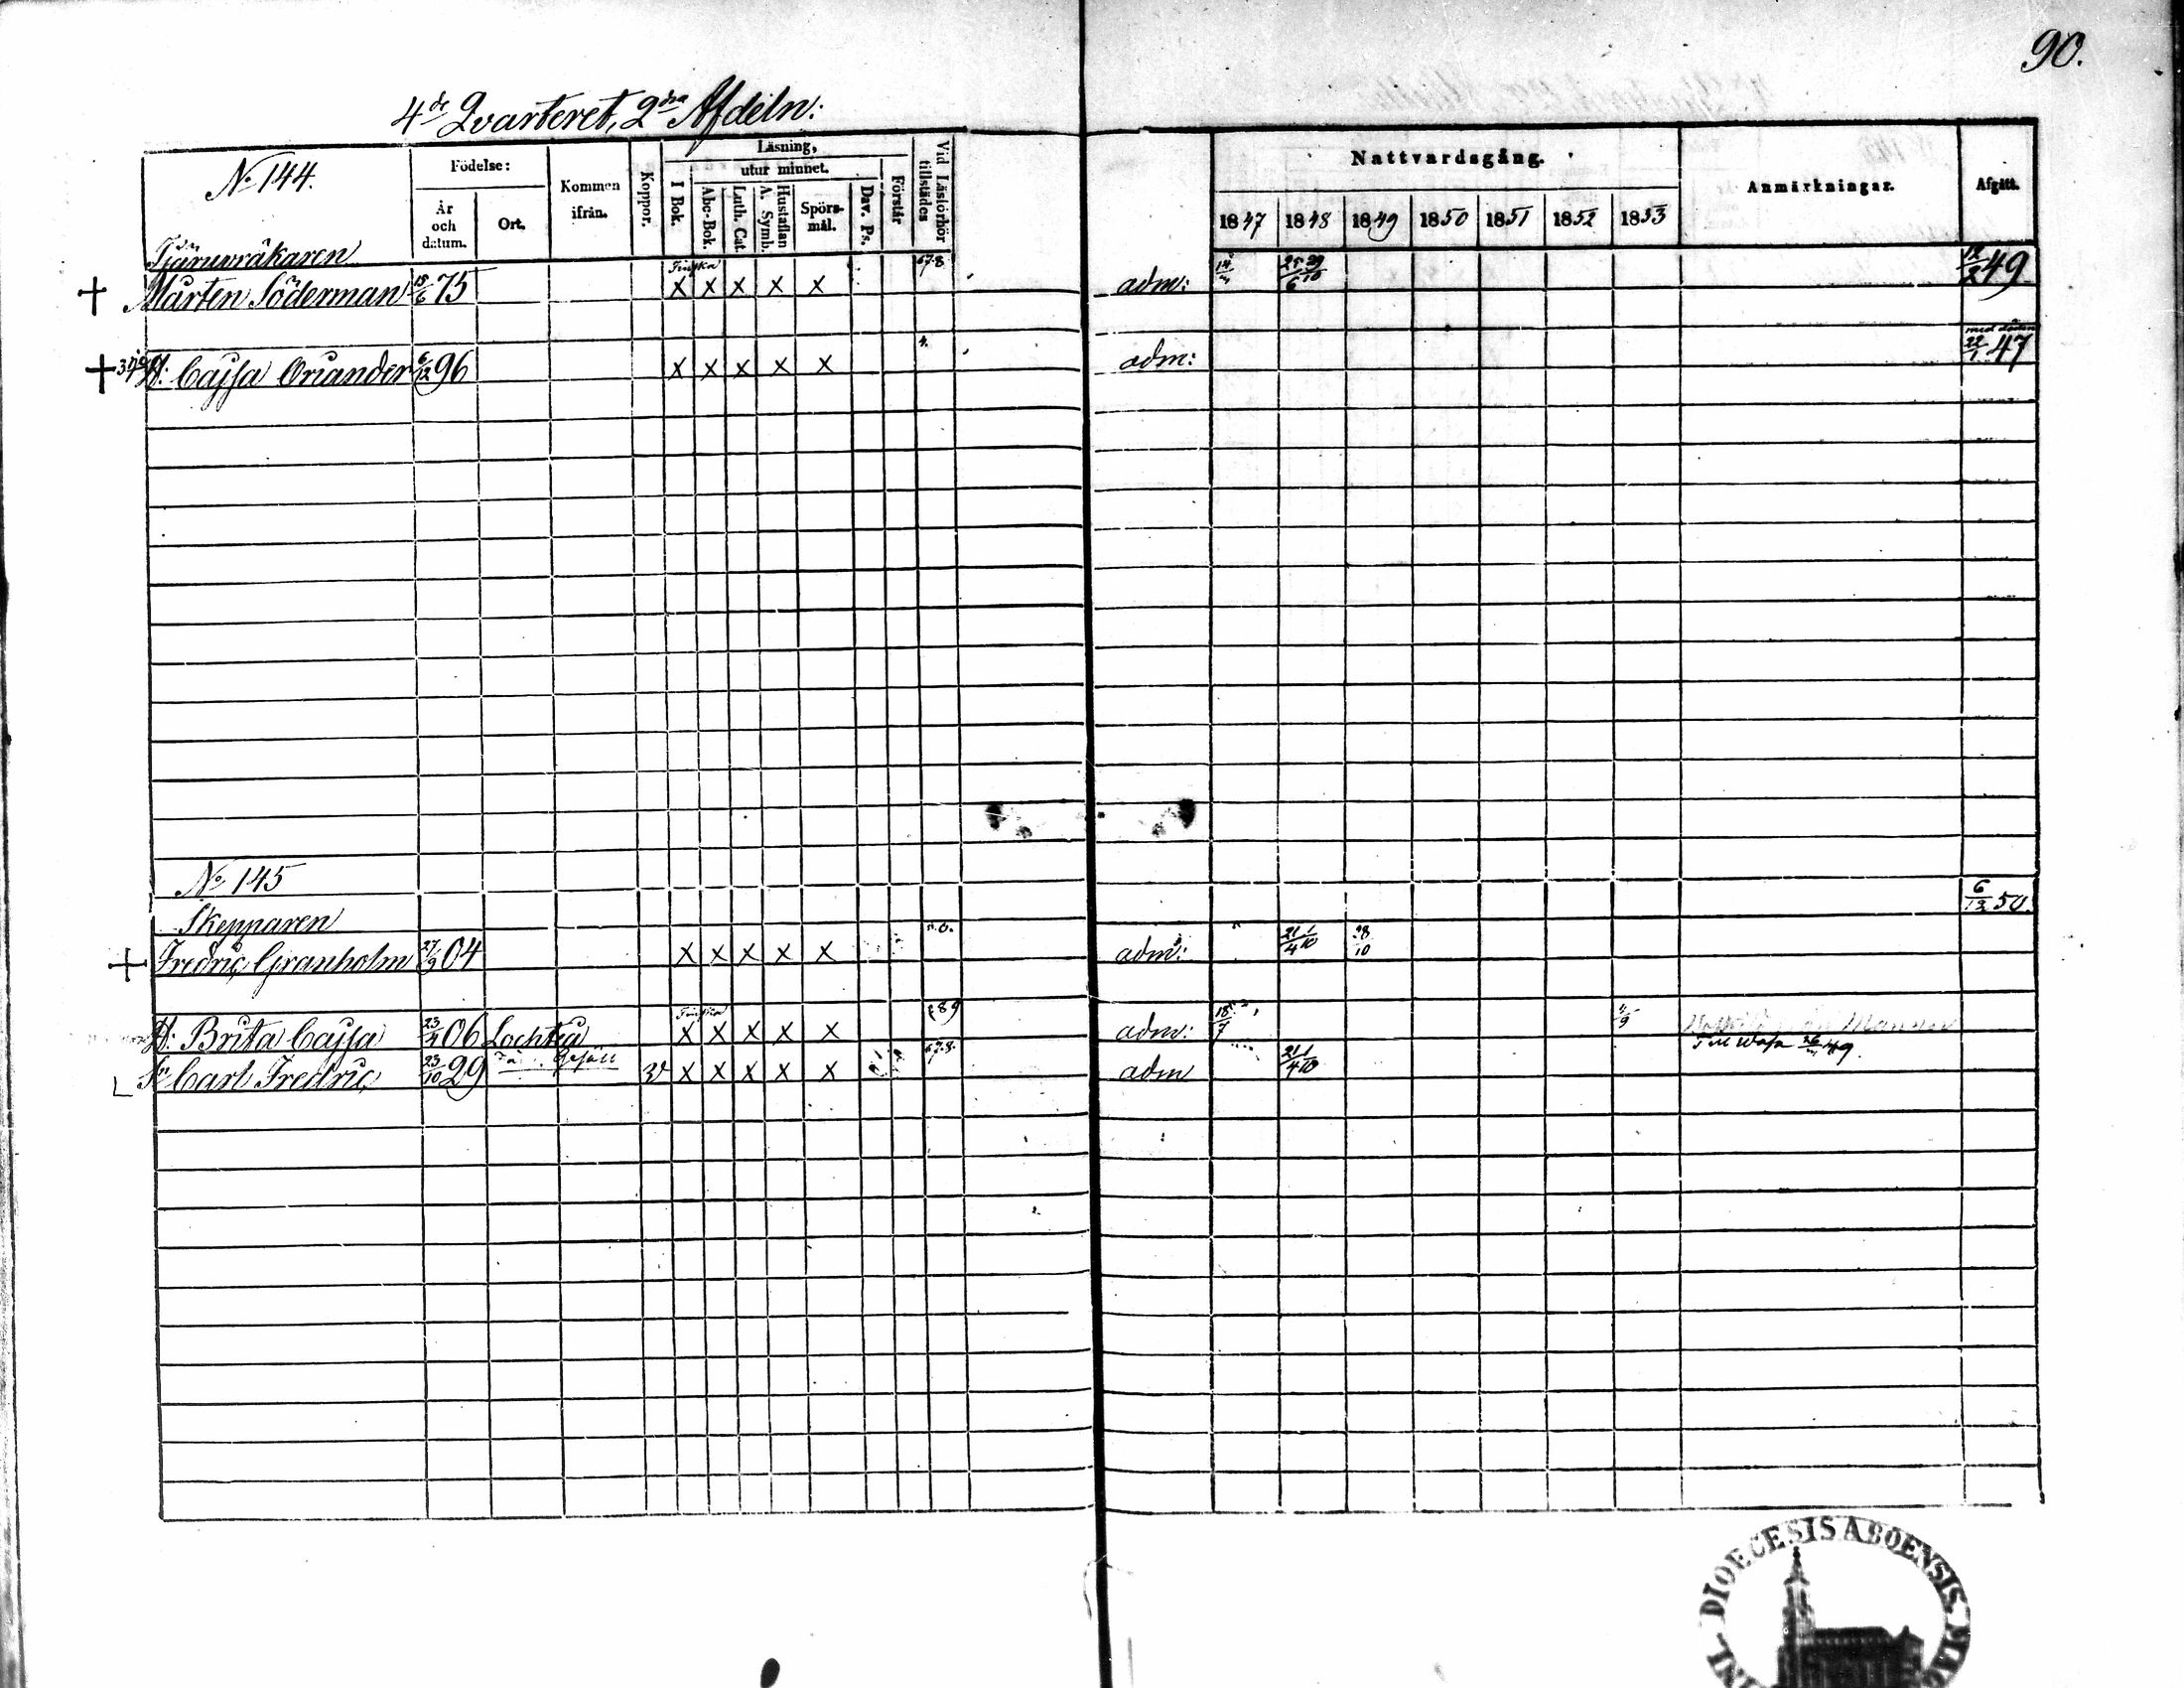 90.
4de Qvarteret, 2dra Afdeln:
No 144. Födelse: År och datum. Ort. Kommen ifrån. Koppor. Läsning, I Bok. utur minnet. Abc-Bok. Luth. Cat. Hustaflan A. Symb. Spörs-mål. Dav. Ps. Förstår Vid Läsförhör tillstädes Nattvardsgång. 1847 1848 1849 1850 1851 1852 1853 Anmärkningar. Afgått.
Tjäruvräkaren
+ Mårten Söderman 15/6 75 Finska X X X X X 6.7.8. adm: 25/6 29/10 12/2 49.
+ H: Cajsa Oriander 6/12 96 X X X X X adm: med döden 22/1 47
No 145
Skepparen 6/12 50.
+ Fredric Granholm 27/9 04 X X X X X adm: 21/4 1/10 28/10
H: Brita Cajsa 23/4 06 Lochteå Finska X X X X X 89 adm: 18/7
Sn Carl Fredric 23/10 29 X X X X X 6.7.8. adm 21/4 1/10 Till Wasa 49.
DIOECESIS ABOENSIS